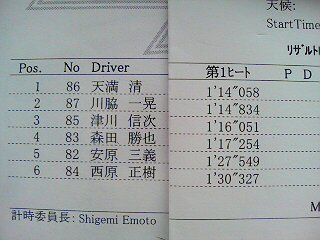 天候:
StartTime
リザルト
Pos. No Driver 第1ヒート P D
1 86 天満 清 1'14"058
2 87 川脇 一晃 1'14"834
3 85 津川 信次 1'16"051
4 83 森田 勝也 1'17"254
5 82 安原 三義 1'27"549
6 84 西原 正樹 1'30"327
計時委員長: Shigemi Emoto
M